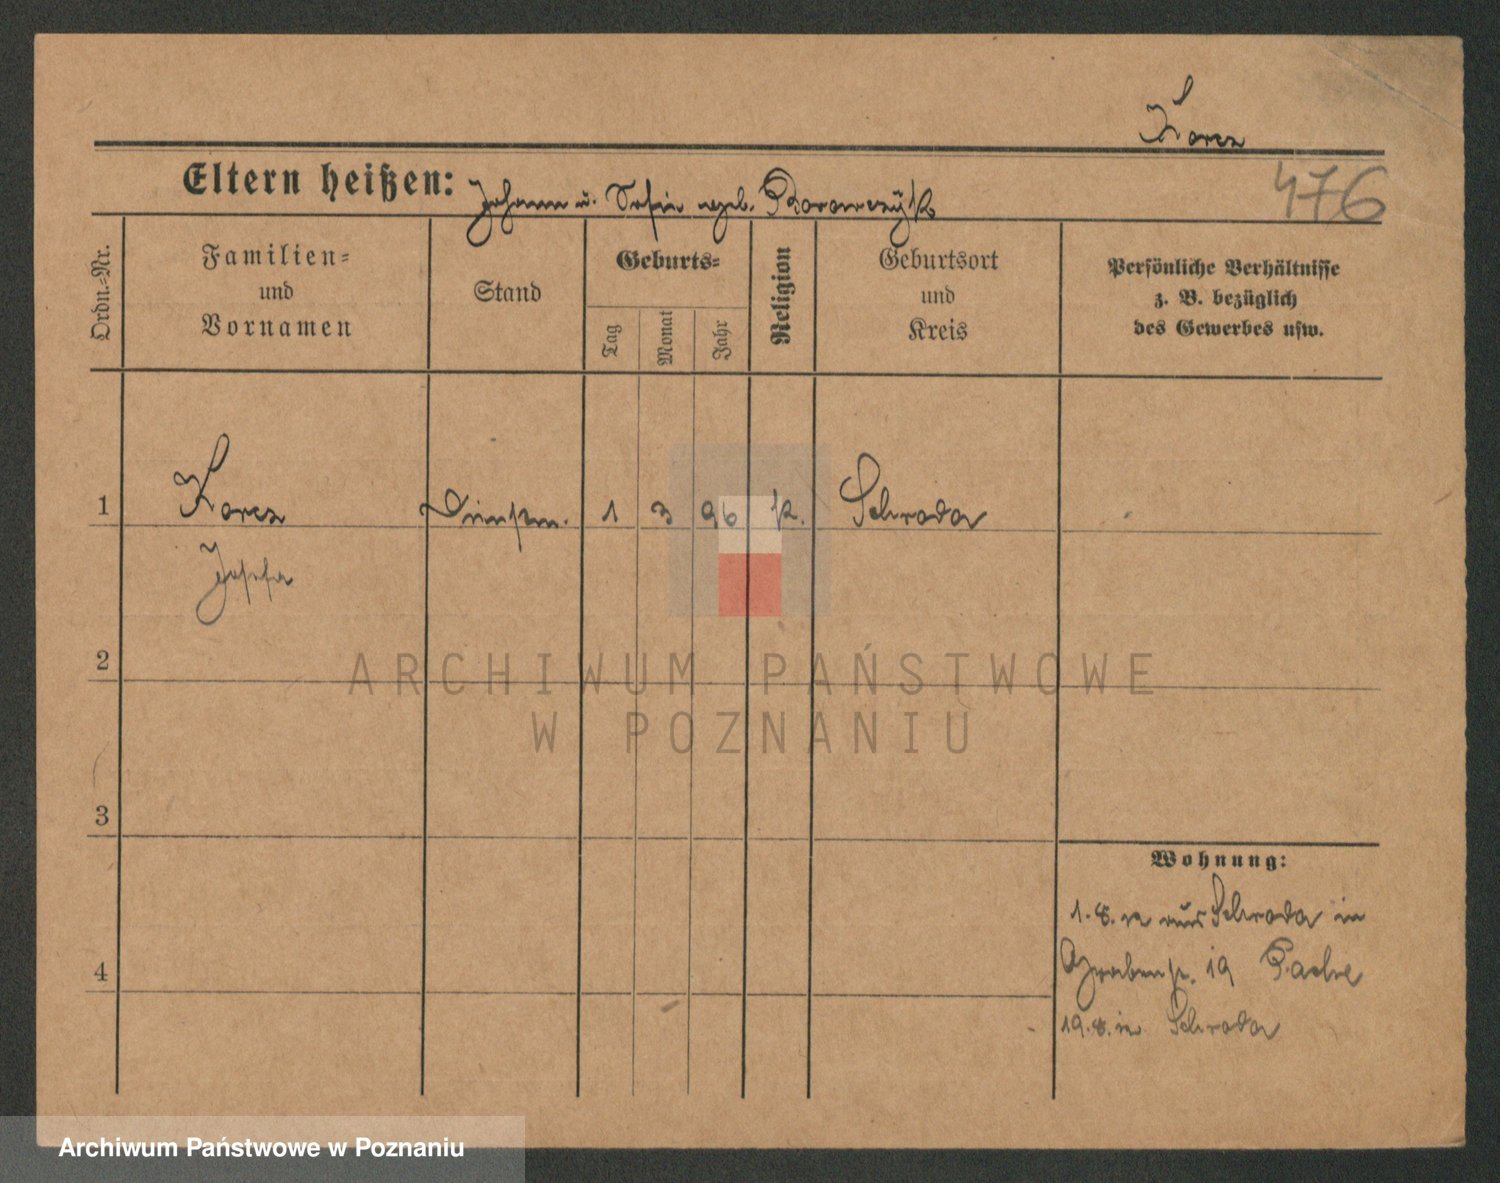 Korcz
476
Eltern heißen: Johann u. Sofia geb. Borowczÿk
Ordn.=Nr.
Familien=
und
Vornamen
Stand
Geburts=
Tag
Monat
Jahr
Religion
Geburtsort
und
Kreis
Persönliche Verhältnisse
z. B. bezüglich
des Gewerbes usw.
1 Korcz Dienstm. 1 3 96 k. Schroda
Josefa
2
ARCHIWUM PAŃSTWOWE
W POZNANIU
3
Wohnung:
1.8. aus Schroda in
Grabenst. 19
4
19.8. in Schroda
Archiwum Państwowe w Poznaniu